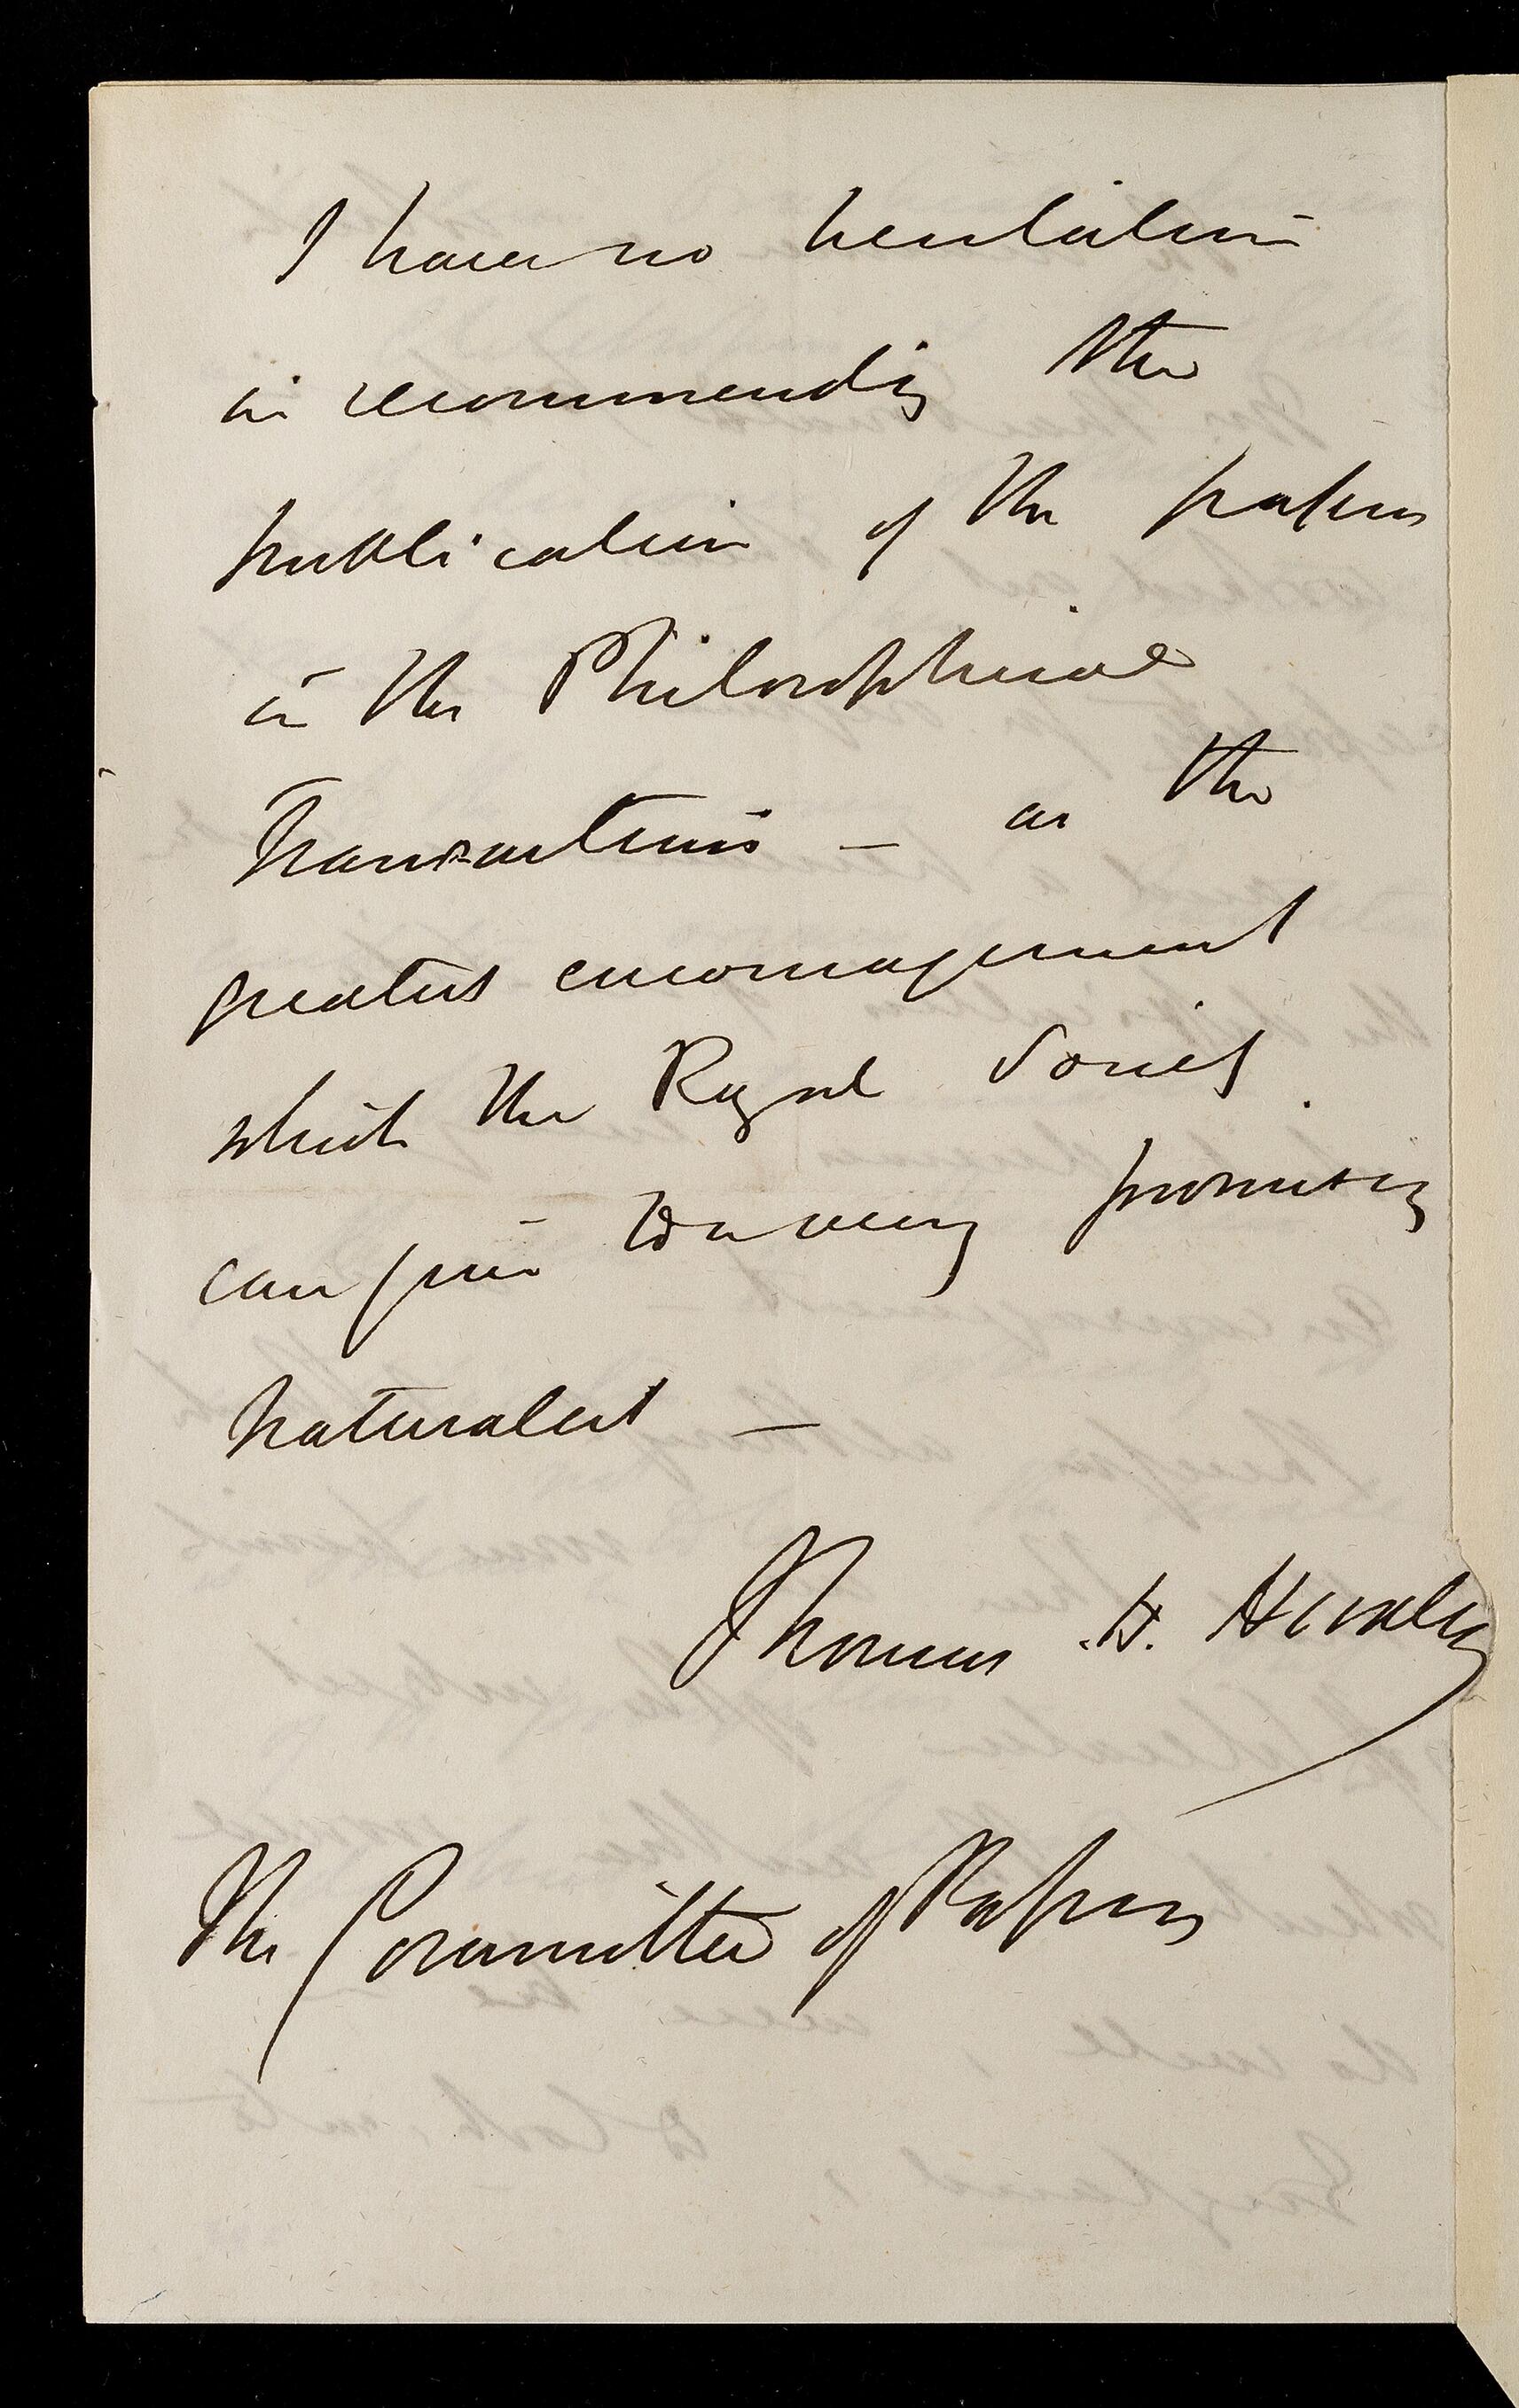 I have no hesitation
in recommending the
publication of the paper
in the Philosophical
Transactions — as the
greatest encouragement
which the Royal Society
can give to a very promising
naturalist —
Thomas H. Huxley
The Committee of Papers